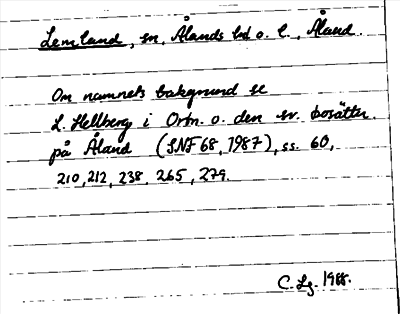 Lemland, sn, Ålands hd o. l., Åland.
Om namnets bakgrund se
L. Hellberg i Ortn. o. den sv. bosättn.
på Åland (SNF 68, 1987), ss. 60,
210, 212, 238, 265, 279.
C. Lg. 1988.